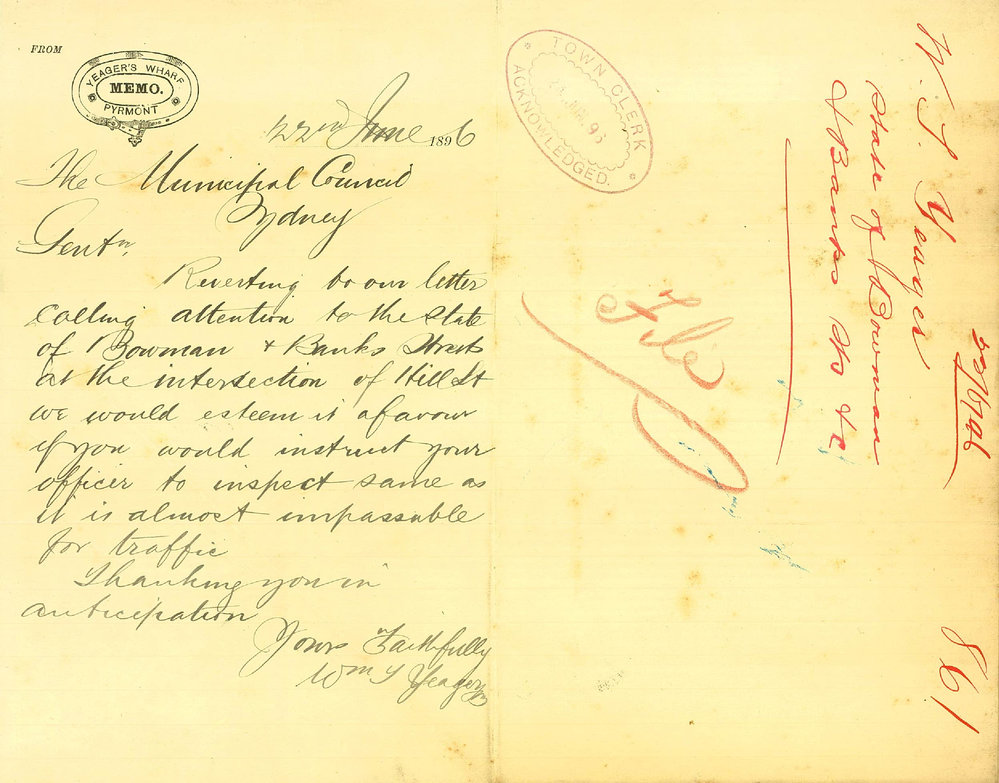 FROM
YEAGER'S WHARF
MEMO.
PYRMONT
22nd June 1896
The Municipal Council
Sydney
Gentn,
Reverting to our letter
calling attention to the state
of Bowman & Banks Streets
at the intersection of Hill St
we would esteem it a favour
if you would instruct your
officer to inspect same as
it is almost impassable
for traffic
Thanking you in
anticipation
Yours Faithfully
Wm J Yeager
TOWN CLERK
JUN. 96
ACKNOWLEDGED.
File
W. J. Yeager
State of Bowman
& Banks Sts &c
22/6/96
861